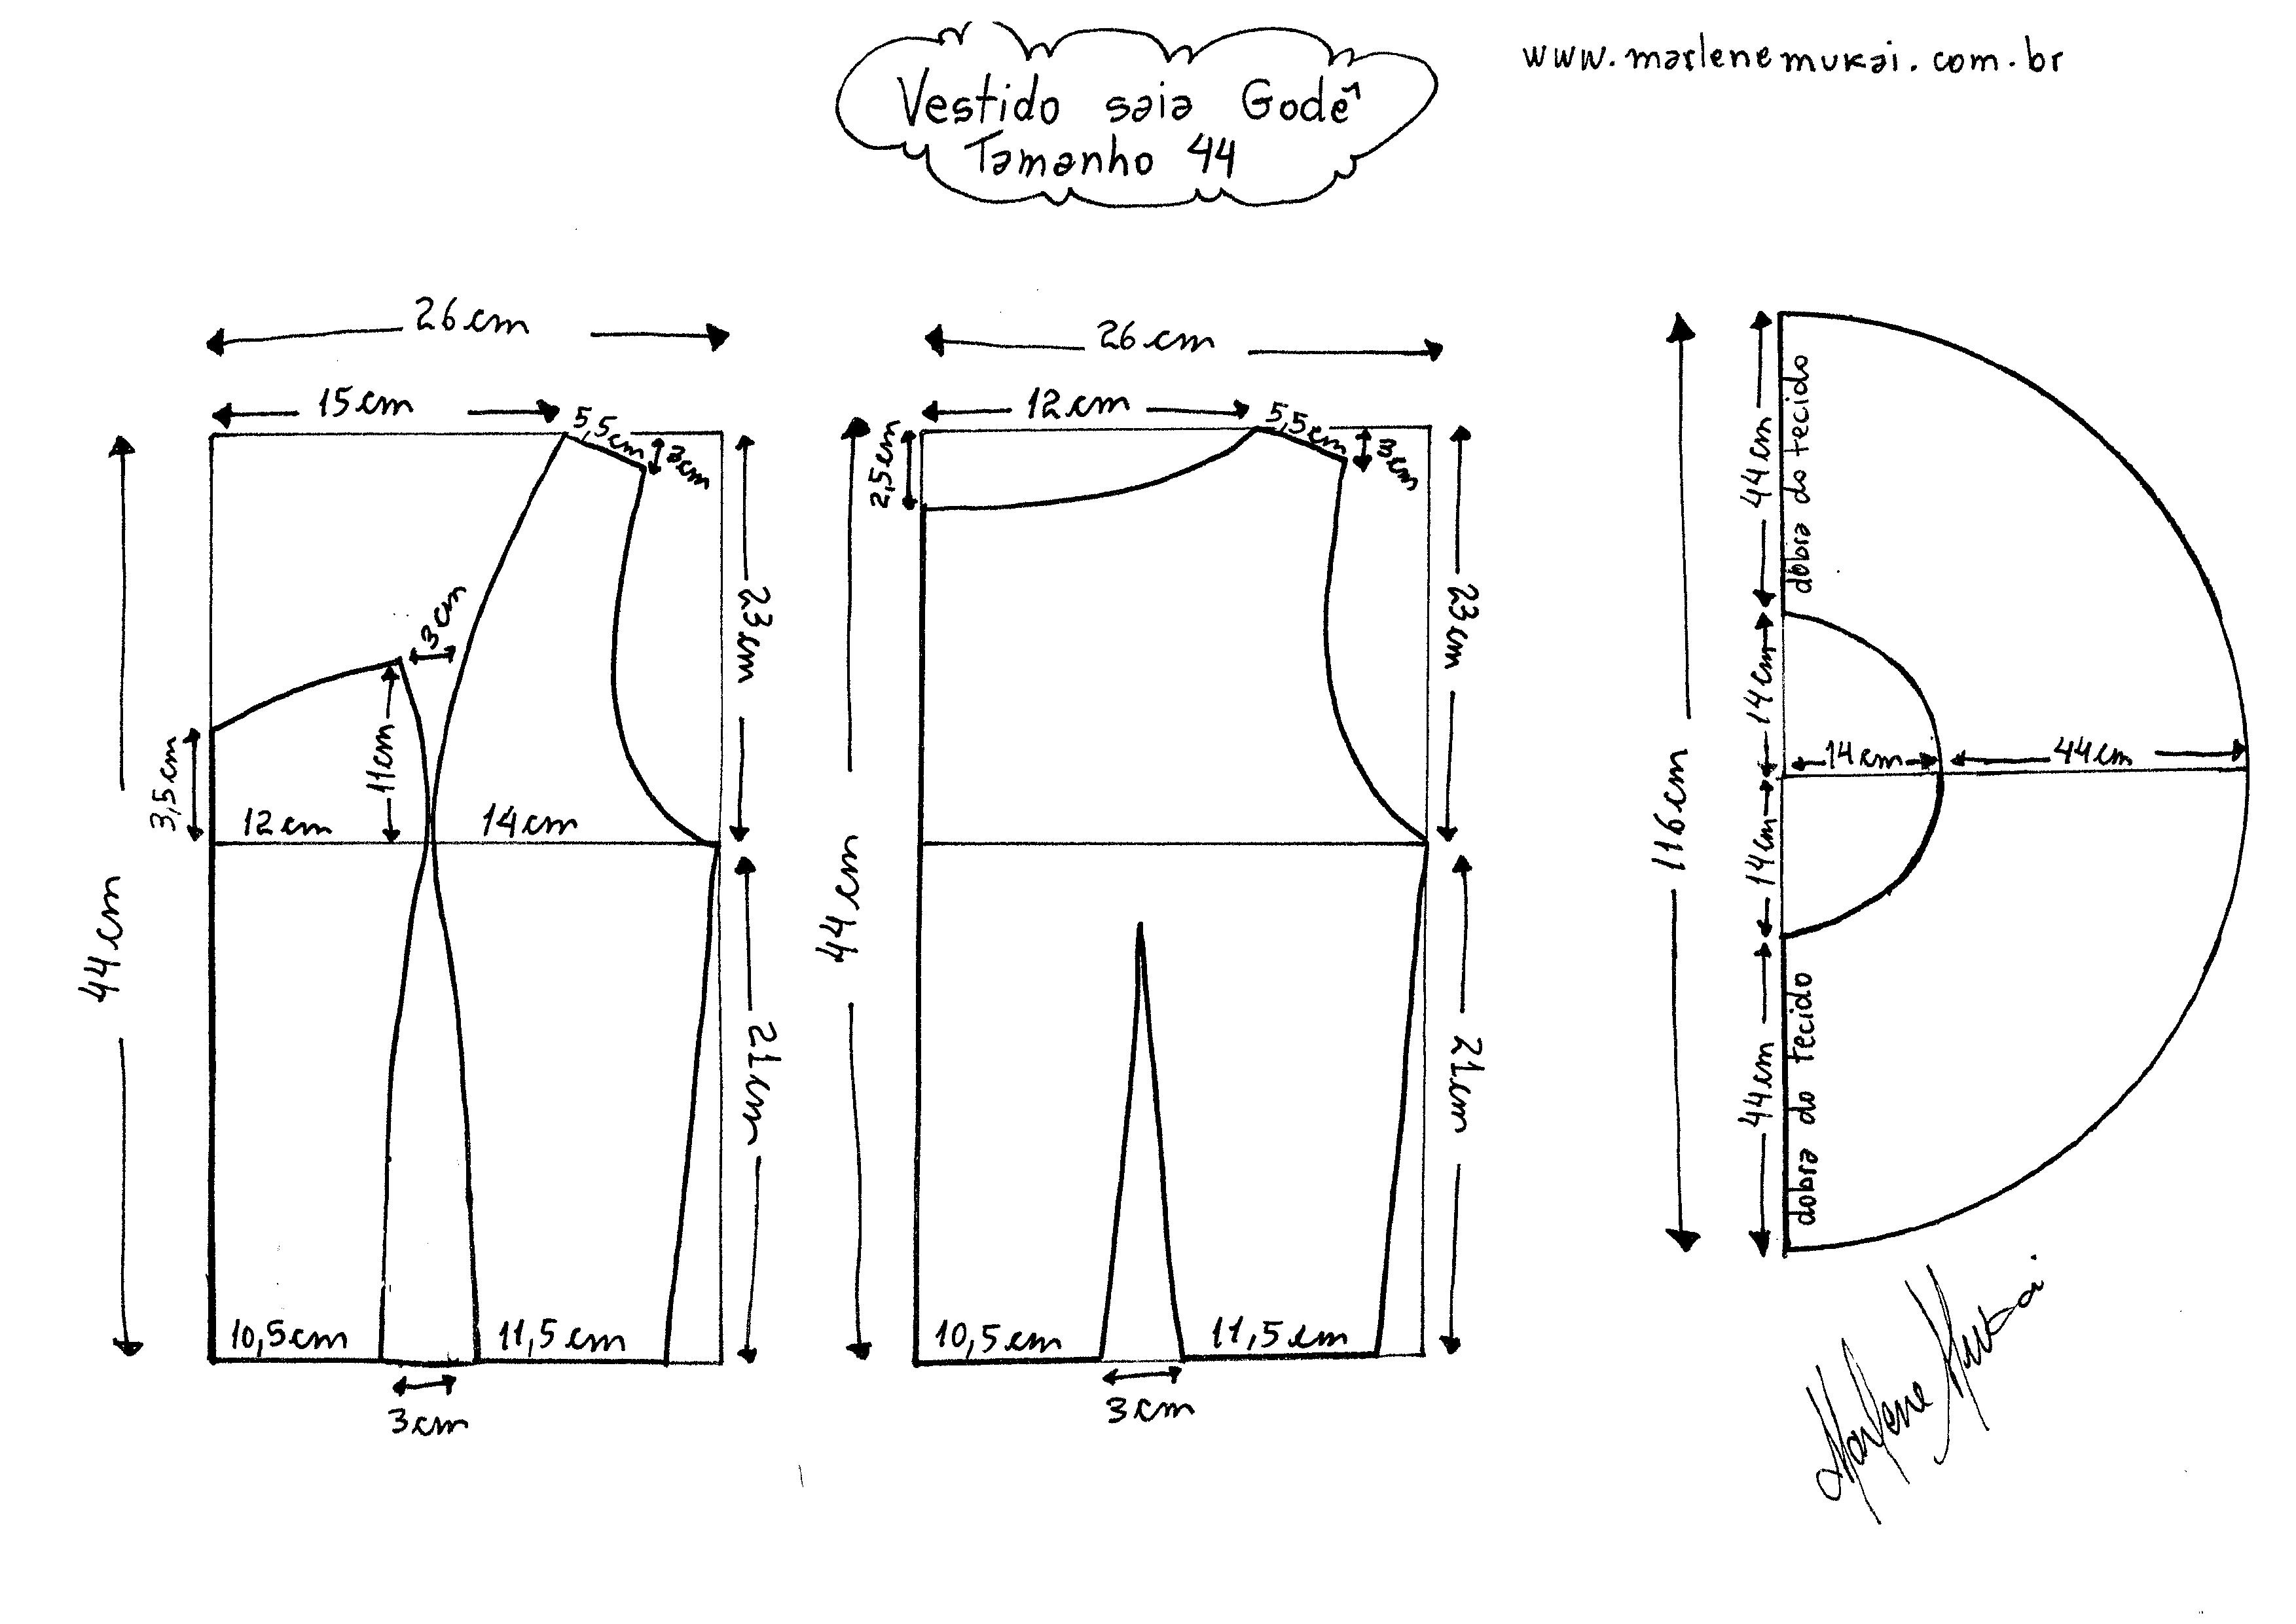 Vestido saia Godê
Tamanho 44
www.marlenemukai.com.br
26cm
15cm
5,5cm
3cm
23cm
3cm
11cm
3,5cm
12cm
14cm
44cm
21cm
10,5cm
11,5cm
3cm
26cm
12cm
5,5cm
3cm
2,5cm
23cm
44cm
21cm
10,5cm
11,5cm
3cm
44cm
dobra do tecido
14cm
14cm
44cm
116cm
14cm
44cm
dobra do tecido
Marlene Mukai